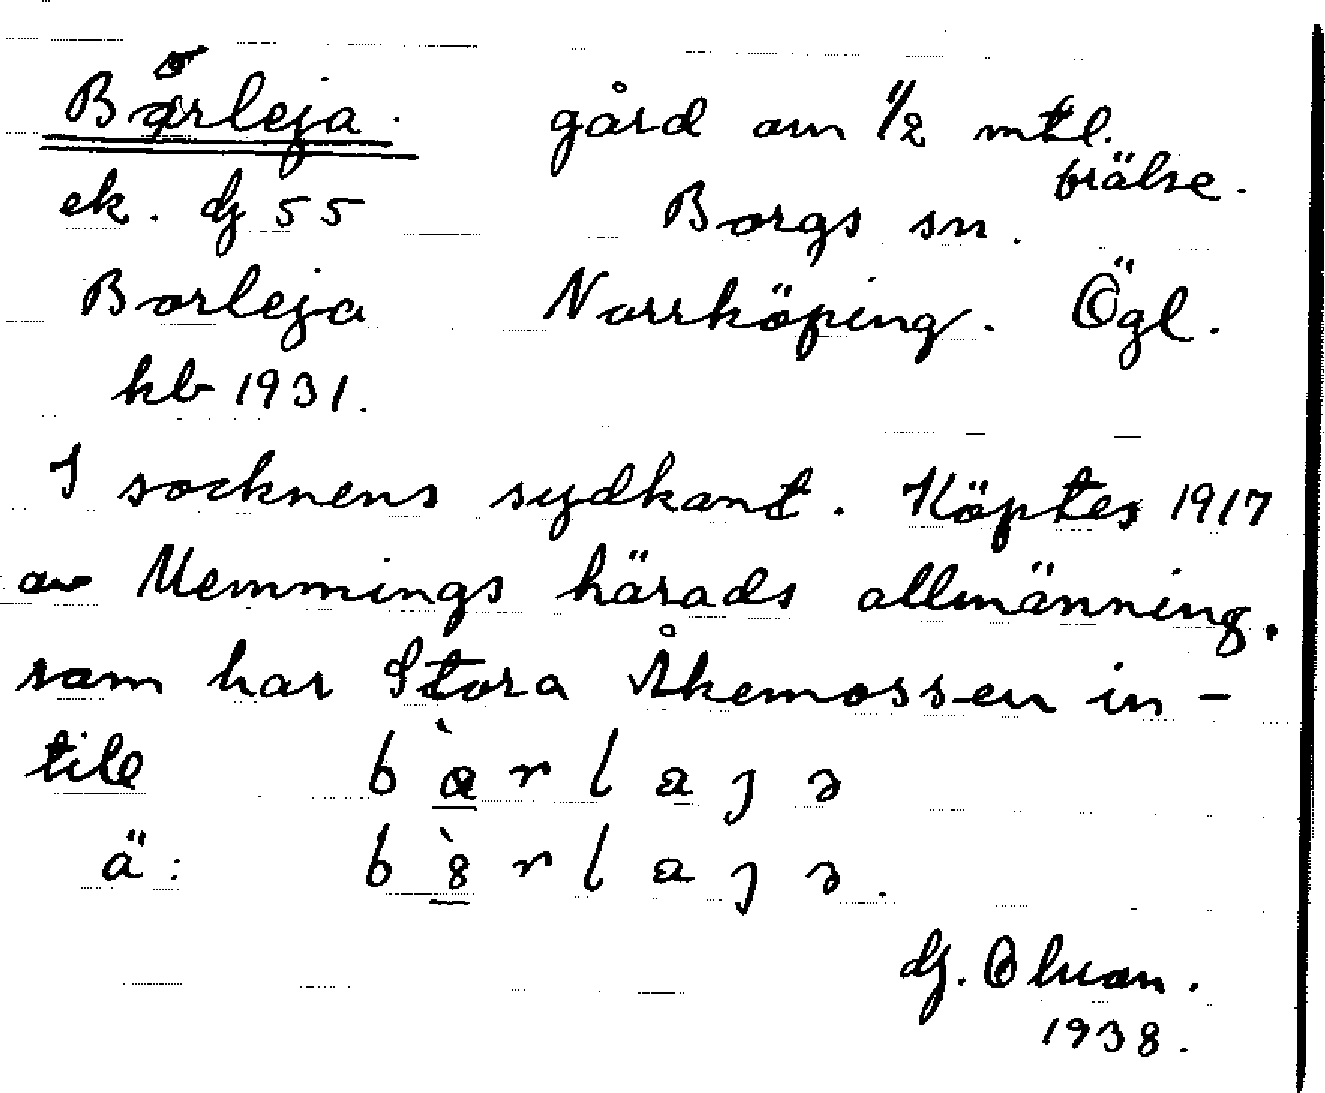 Börleja. gård om 1/2 mtl.
frälse.
ek. dj 55 Borgs sn.
Borleja Norrköping. Ögl.
kb 1931.
I socknens sydkant. Köptes 1917
av Memmings härads allmänning,
som har Stora Åkemossen in-
till bàrlajɘ
ä: b8̀rlajɘ.
1938.